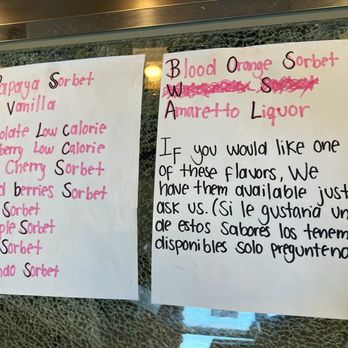 apaya Sorbet
Vanilla
olate Low Calorie
berry Low Calorie
Cherry Sorbet
d berries Sorbet
Sorbet
ple Sorbet
Sorbet
Sorbet
Blood Orange Sorbet
Amaretto Liquor
If you would like one
of these flavors, We
have them available just
ask us. (Si le gustaria un
de estos sabores los tenem
disponibles solo pregunten